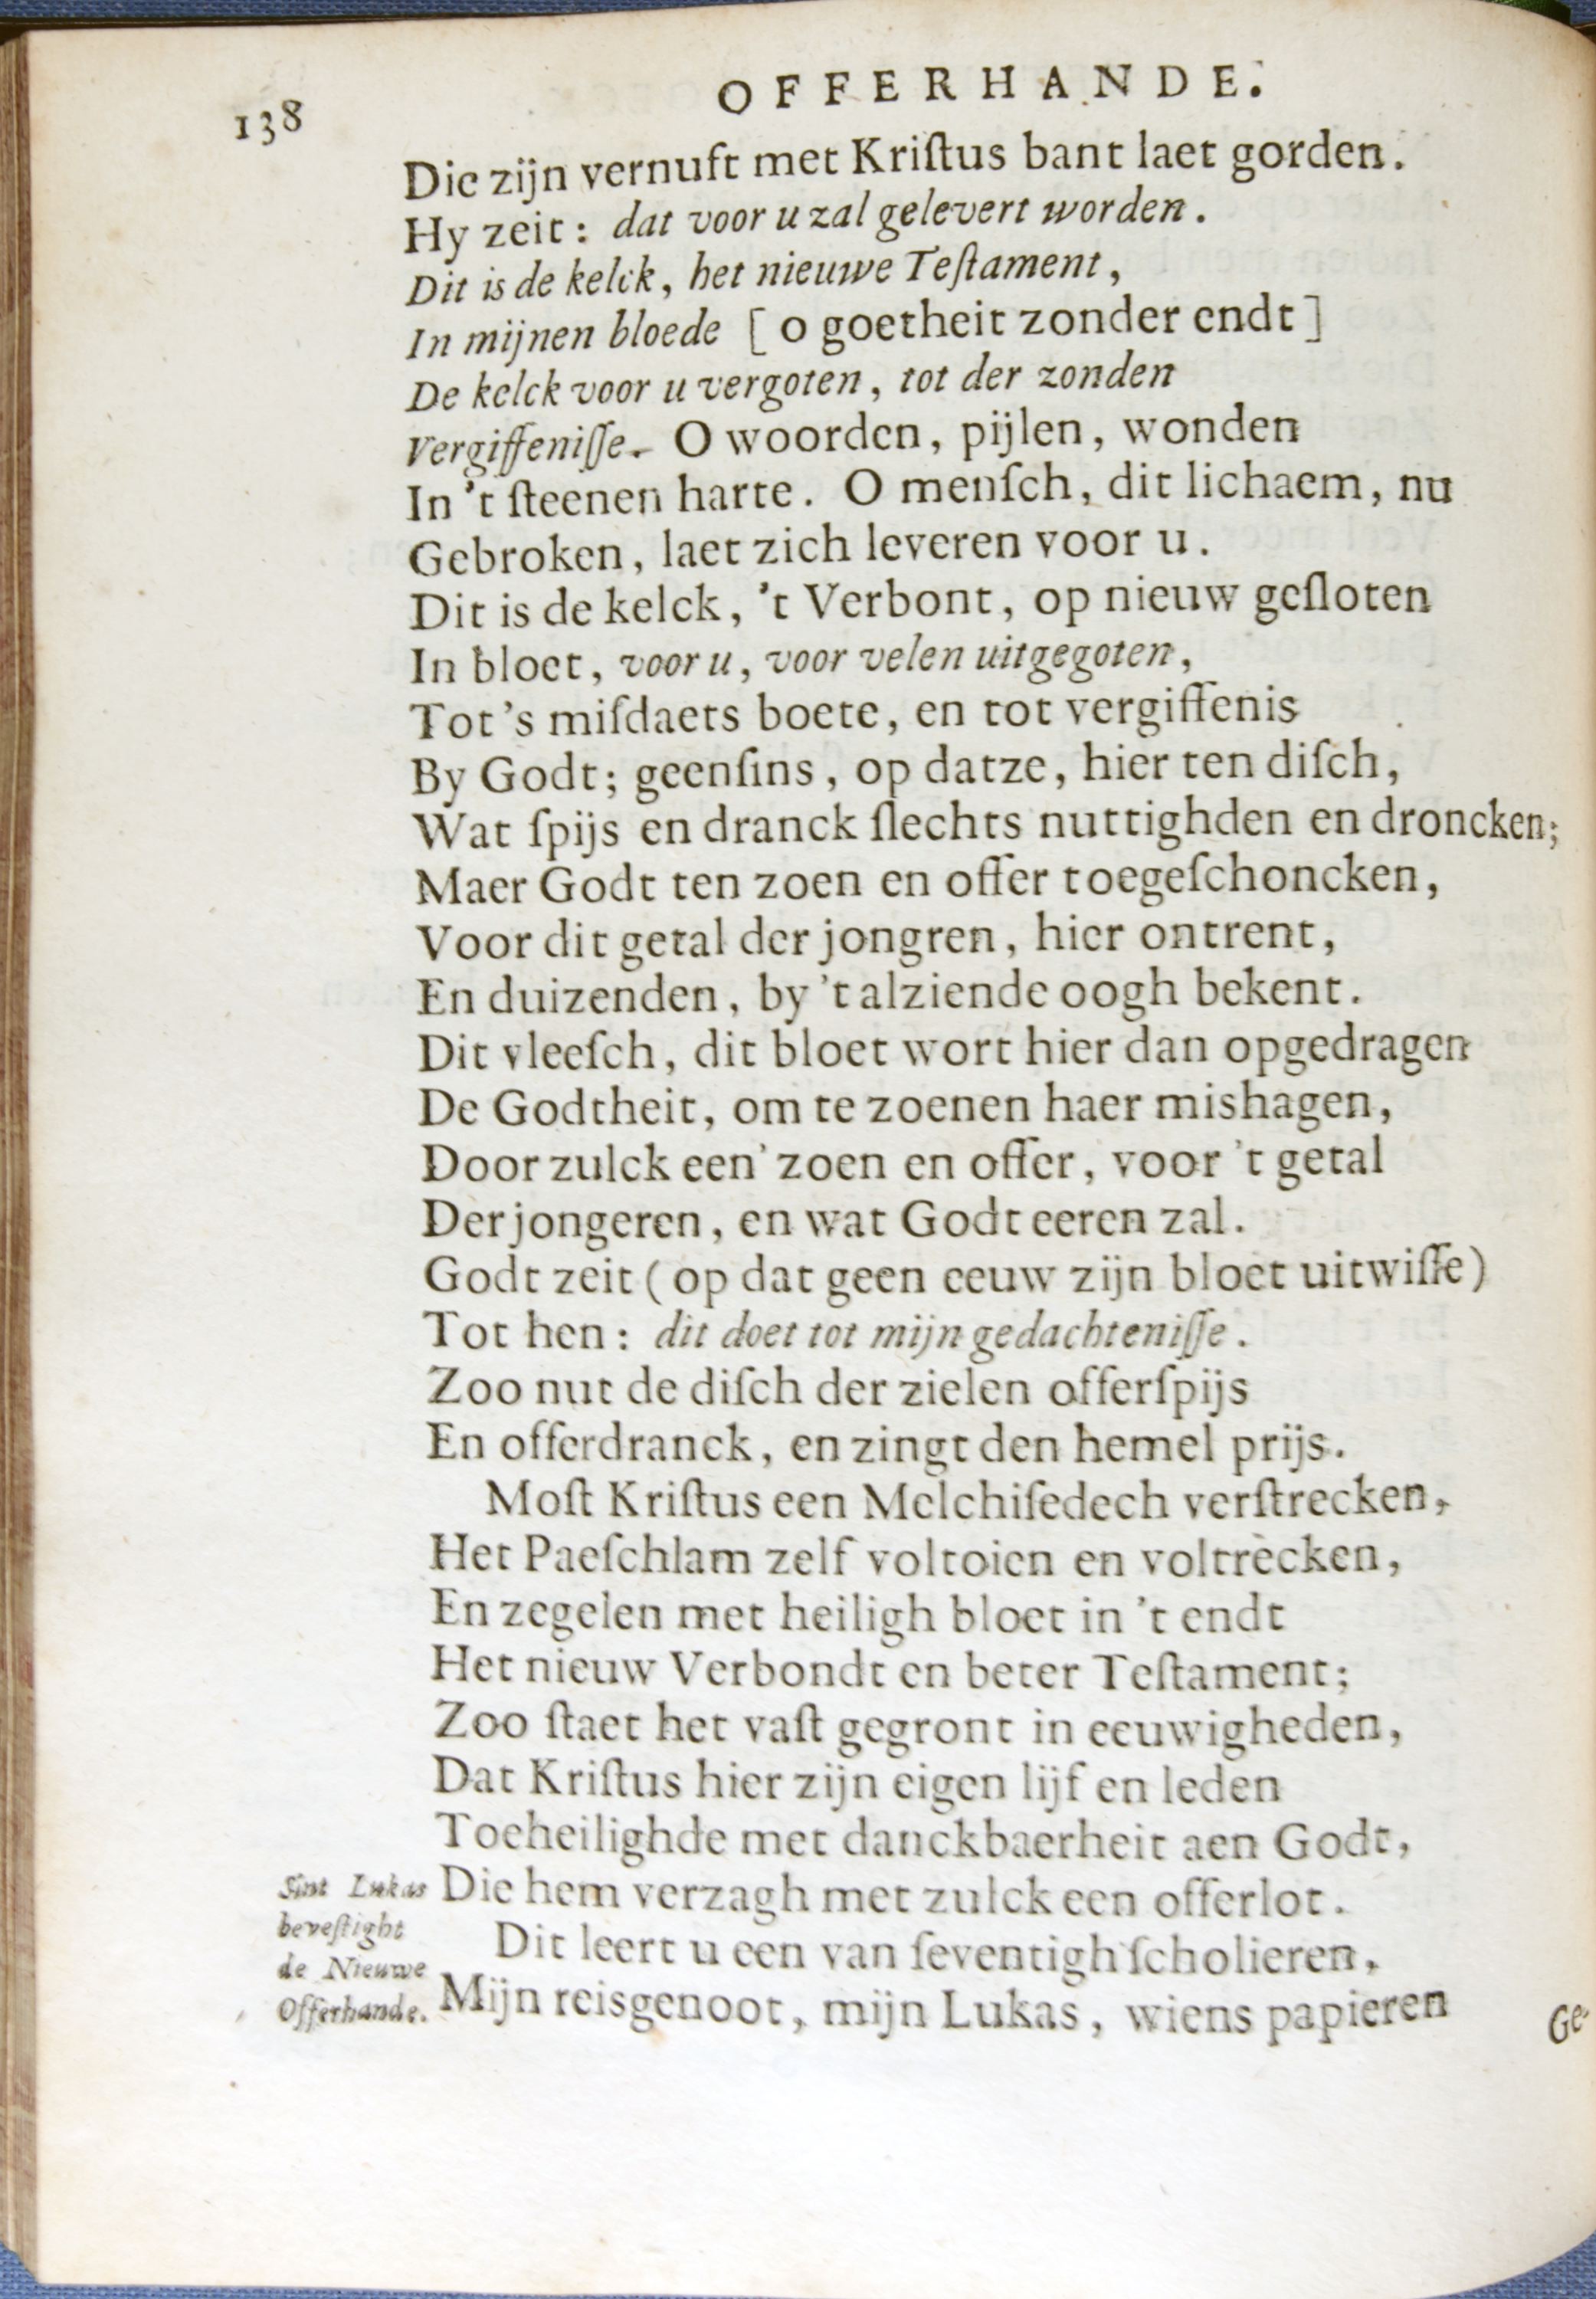 138
OFFERHANDE.
Die zijn vernuft met Kriſtus bant laet gorden.
Hy zeit: dat voor u zal gelevert worden.
Dit is de kelck, het nieuwe Teſtament,
In mijnen bloede [ o goetheit zonder endt ]
De kelck voor u vergoten, tot der zonden
Vergiffeniſſe. O woorden, pijlen, wonden
In 't ſteenen harte. O menſch, dit lichaem, nu
Gebroken, laet zich leveren voor u.
Dit is de kelck, 't Verbont, op nieuw geſloten
In bloet, voor u, voor velen uitgegoten,
Tot 's miſdaets boete, en tot vergiffenis
By Godt; geenſins, op datze, hier ten diſch,
Wat ſpijs en dranck ſlechts nuttighden en droncken;
Maer Godt ten zoen en offer toegeſchoncken,
Voor dit getal der jongren, hier ontrent,
En duizenden, by 't alziende oogh bekent.
Dit vleeſch, dit bloet wort hier dan opgedragen
De Godtheit, om te zoenen haer mishagen,
Door zulck een' zoen en offer, voor 't getal
Der jongeren, en wat Godt eeren zal.
Godt zeit ( op dat geen eeuw zijn bloet uitwiſſe)
Tot hen: dit doet tot mijn gedachteniſſe.
Zoo nut de diſch der zielen offerſpijs
En offerdranck, en zingt den hemel prijs.
Moſt Kriſtus een Melchiſedech verſtrecken,
Het Paeſchlam zelf voltoien en voltrecken,
En zegelen met heiligh bloet in 't endt
Het nieuw Verbondt en beter Teſtament;
Zoo ſtaet het vaſt gegront in eeuwigheden,
Dat Kriſtus hier zijn eigen lijf en leden
Toeheilighde met danckbaerheit aen Godt,
Die hem verzagh met zulck een offerlot.
Sint Lukas
beveſtight
de Nieuwe
Offerhande.
Dit leert u een van ſeventigh ſcholieren,
Mijn reisgenoot, mijn Lukas, wiens papieren
Ge-